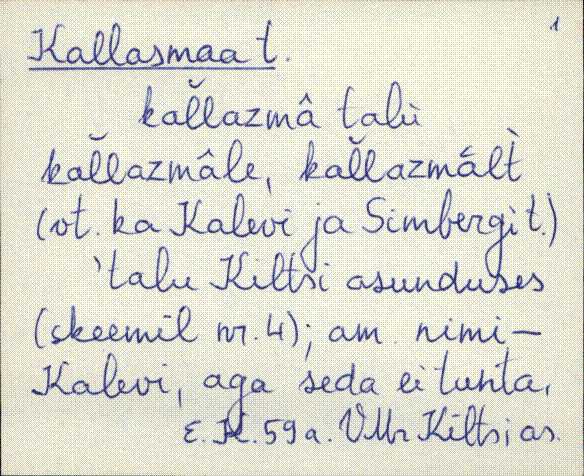 1
Kallasmaa t.
kal̆lazmâ talù
kal̆lazmâle, kal̆lazmá̄lt̀
(vt. ka Kalevi ja Simbergi t.)
'talu Kiltsi asunduses
(skeemil nr. 4); am. nimi —
Kalevi, aga seda ei tunta.
E. K. 59 a. VMr Kiltsi as.